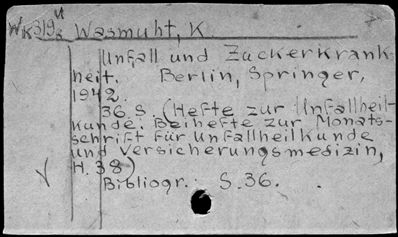 WK319u Wasmuht, K.
Unfall und Zuckerkrank
heit. Berlin, Springer,
1942.
36 S. (Hefte zur Unfallheil-
kunde. Beihefte zur Monats-
schrift für Unfallheilkunde
und Versicherungsmedizin,
H. 38)
Bibliogr.: S. 36.